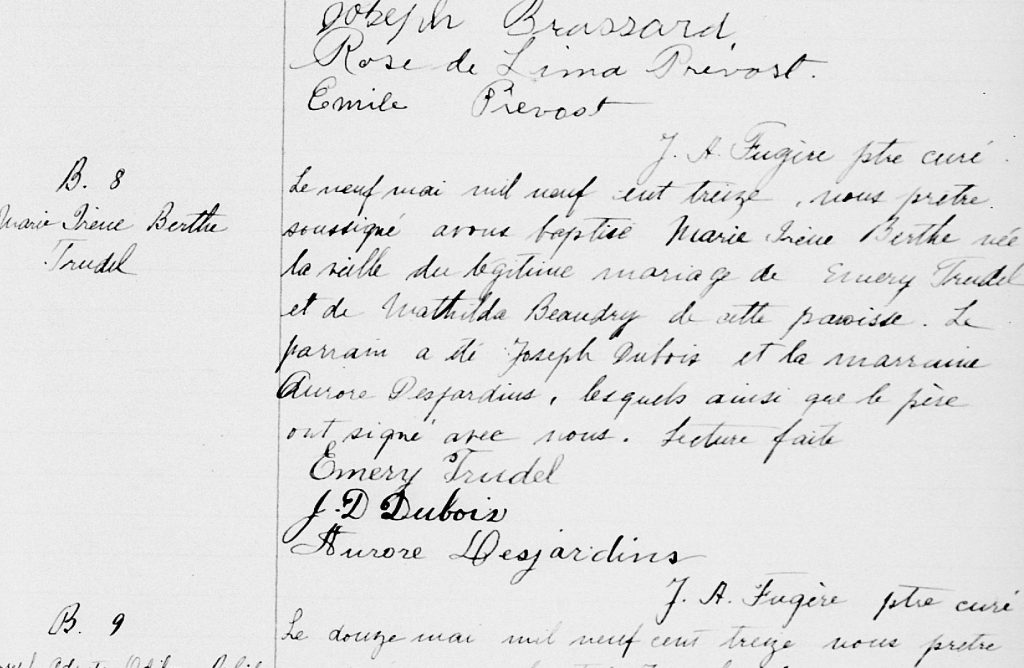 Joseph Brassard
Rose de Lima Prévost.
Emile Prévost
J. A. Fugère ptre curé.
B. 8
Marie Irène Berthe
Trudel
Le neuf mai mil neuf cent treize, nous pretre
soussigné avons baptisé Marie Irène Berthe née
la veille du légitime mariage de Emery Trudel
et de Mathilda Beaudry de cette paroisse. Le
parrain a été Joseph Dubois et la marraine
Aurore Desjardins, lesquels ainsi que le père
ont signé avec nous. Lecture faite
Emery Trudel
J. D Dubois
Aurore Desjardins
J. A. Fugère ptre curé
B. 9
Le douze mai mil neuf cent treize nous pretre